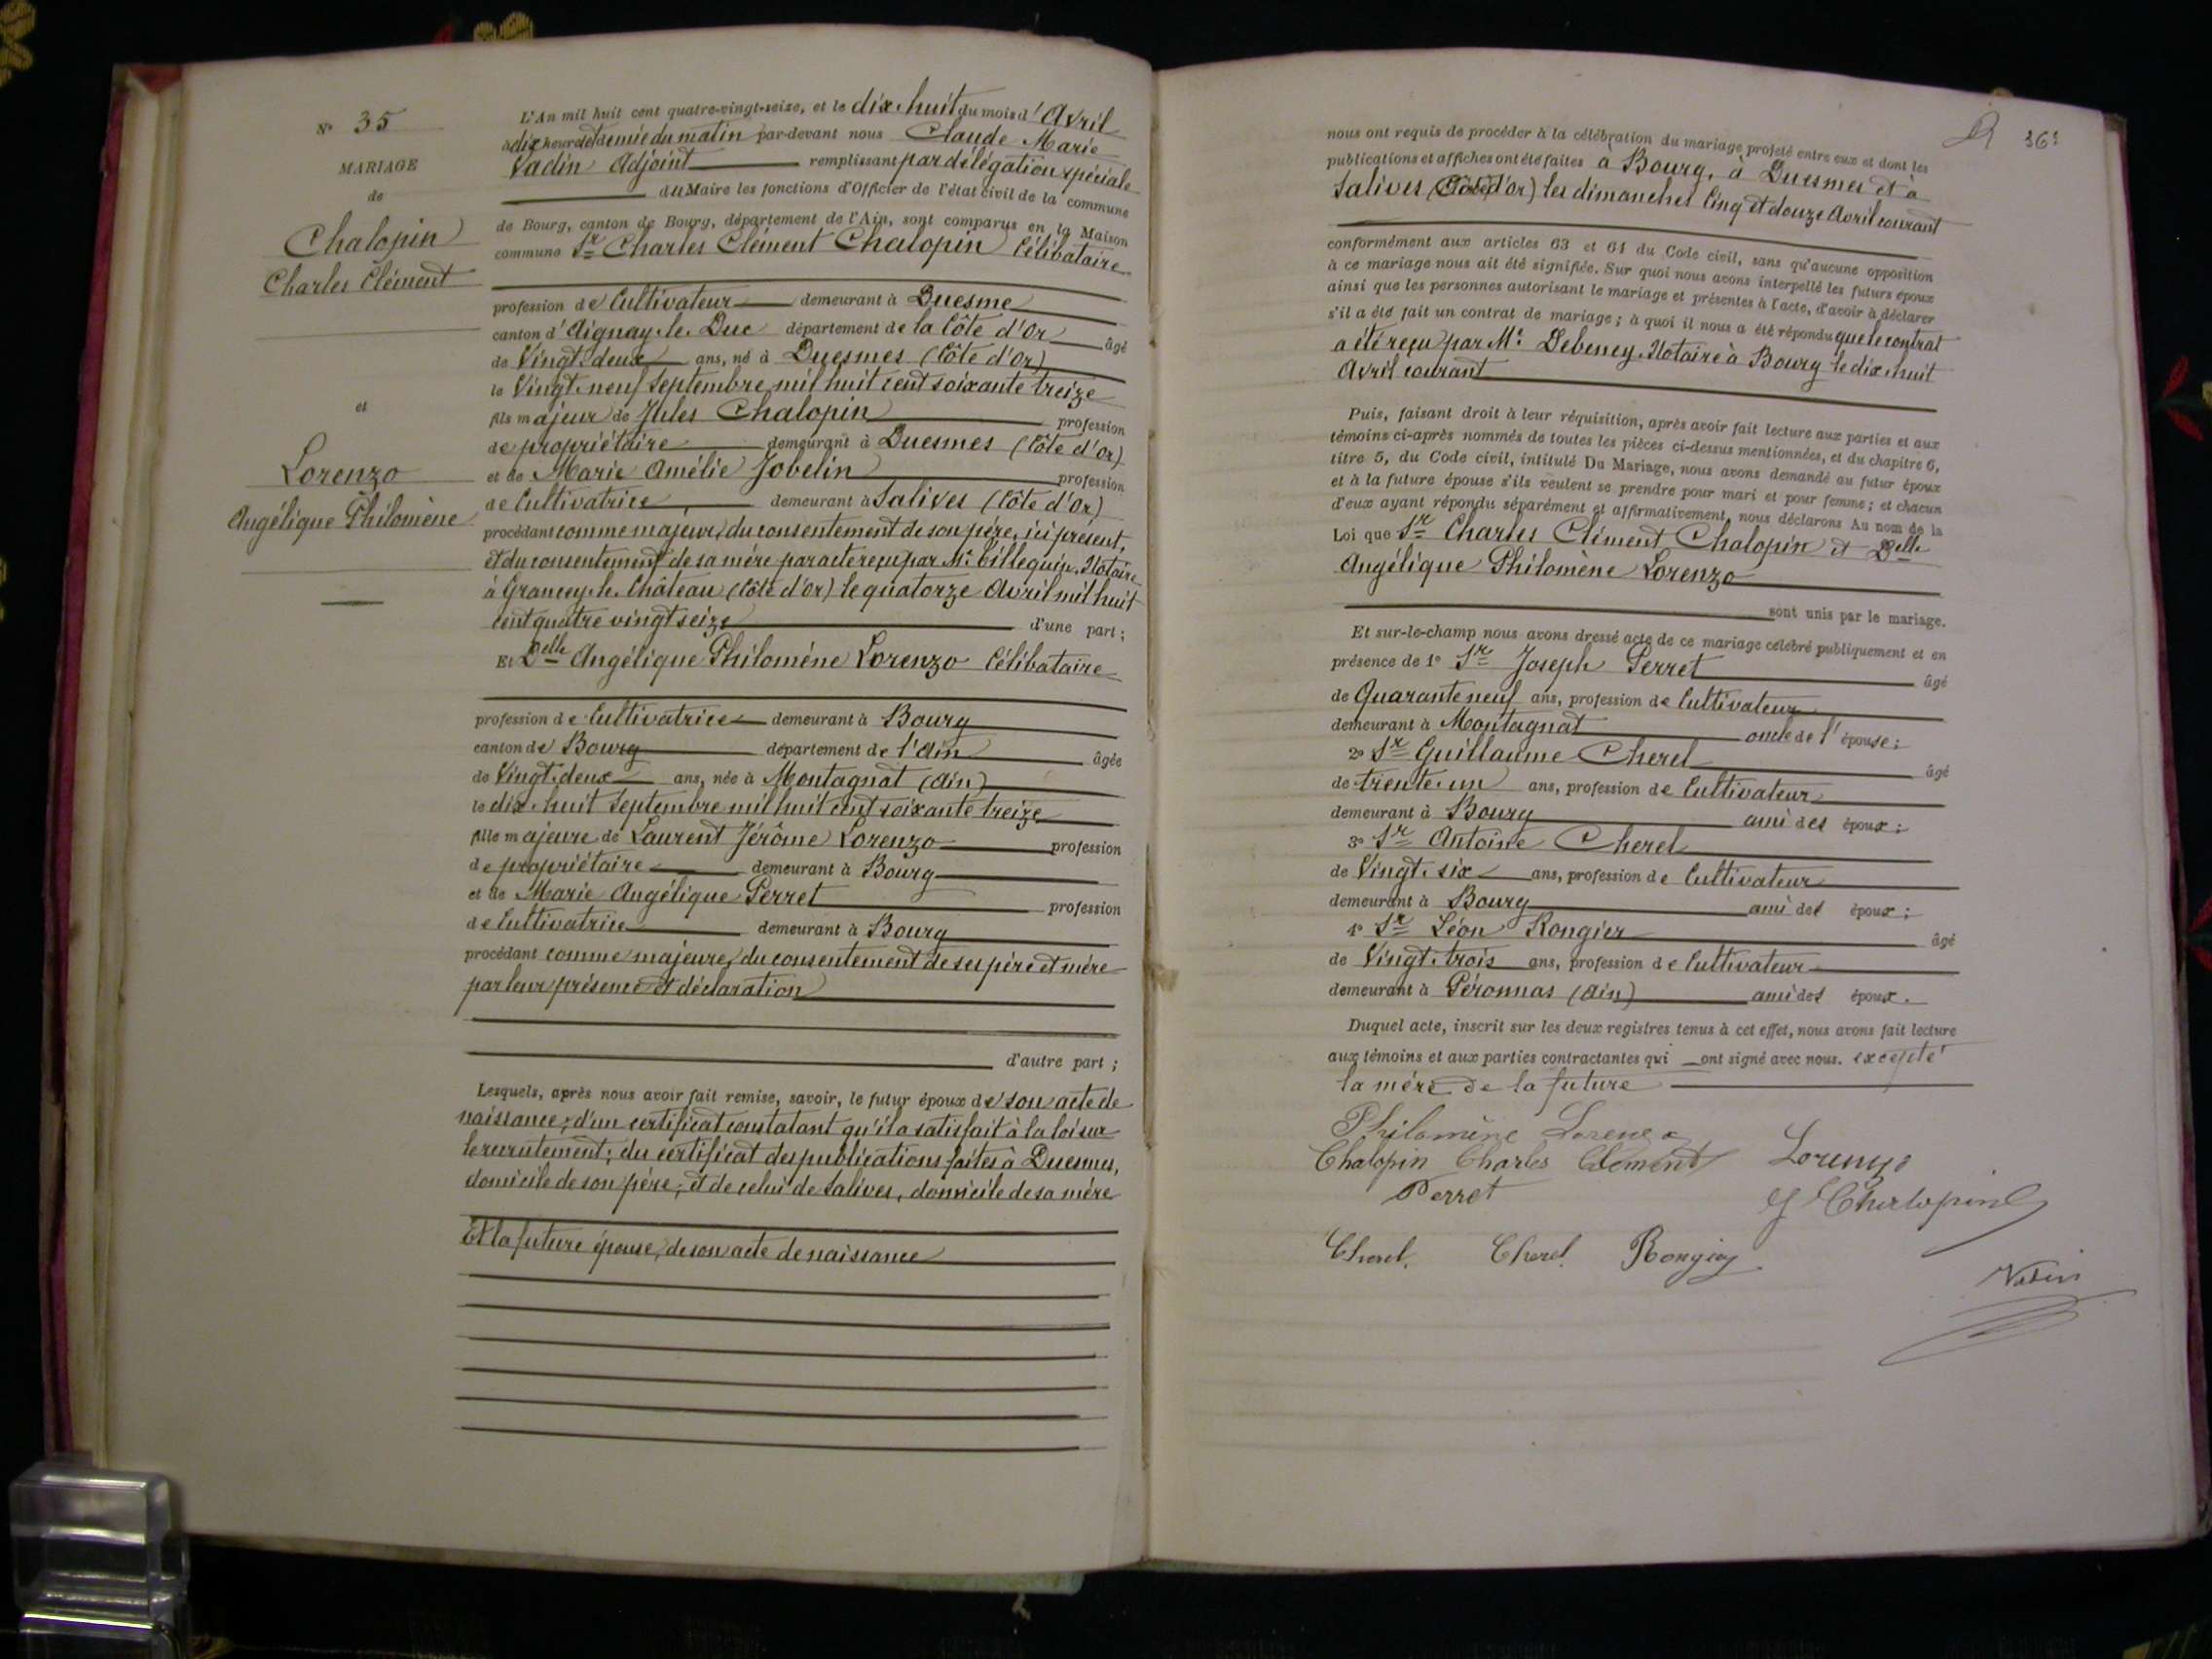 N° 35
MARIAGE
de
Chalopin
Charles Clément
et
Lorenzo
Angélique Philomène
L'An mil huit cent quatre-vingt-seize, et le dix-huit du mois d'Avril
à dix heures et demie du matin par-devant nous Claude Marie
Vadin Adjoint remplissant par délégation spéciale
du Maire les fonctions d'Officier de l'état civil de la commune
de Bourg, canton de Bourg, département de l'Ain, sont comparus en la Maison
commune Sr Charles Clément Chalopin Célibataire
profession de Cultivateur demeurant à Duesme
canton d'Aignay-le-Duc département de la Côte d'Or âgé
de Vingt-deux ans, né à Duesmes (Côte d'Or)
le Vingt-neuf Septembre mil huit cent soixante treize
fils majeur de Jules Chalopin profession
de propriétaire demeurant à Duesmes (Côte d'Or)
et de Marie Amélie Jobelin profession
de Cultivatrice demeurant à Salives (Côte d'Or)
procédant comme majeur, du consentement de son père, ici présent,
et du consentement de sa mère par acte reçu par Me Cillequin, Notaire
à Grancey-le-Château (Côte d'Or) le quatorze Avril mil huit
cent quatre vingt seize d'une part;
Et Delle Angélique Philomène Lorenzo Célibataire
profession de Cultivatrice demeurant à Bourg
canton de Bourg département de l'Ain âgée
de Vingt-deux ans, née à Montagnat (Ain)
le dix-huit Septembre mil huit cent soixante treize
fille majeure de Laurent Jérôme Lorenzo profession
de propriétaire demeurant à Bourg
et de Marie Angélique Perret profession
de Cultivatrice demeurant à Bourg
procédant comme majeure, du consentement de ses père et mère
par leur présence et déclaration
d'autre part;
Lesquels, après nous avoir fait remise, savoir, le futur époux de son acte de
naissance; d'un certificat constatant qu'il a satisfait à la loi sur
le recrutement; du certificat des publications faites à Duesmes,
domicile de son père; et de celui de Salives, domicile de sa mère
Et la future épouse, de son acte de naissance
36
nous ont requis de procéder à la célébration du mariage projeté entre eux et dont les
publications et affiches ont été faites à Bourg, à Duesmes et à
Salives (Côte d'Or) les dimanches Cinq et douze Avril courant
conformément aux articles 63 et 64 du Code civil, sans qu'aucune opposition
à ce mariage nous ait été signifiée. Sur quoi nous avons interpellé les futurs époux
ainsi que les personnes autorisant le mariage et présentes à l'acte, d'avoir à déclarer
s'il a été fait un contrat de mariage; à quoi il nous a été répondu que le contrat
a été reçu par Me Debeney, Notaire à Bourg le dix-huit
Avril courant
Puis, faisant droit à leur réquisition, après avoir fait lecture aux parties et aux
témoins ci-après nommés de toutes les pièces ci-dessus mentionnées, et du chapitre 6,
titre 5, du Code civil, intitulé Du Mariage, nous avons demandé au futur époux
et à la future épouse s'ils veulent se prendre pour mari et pour femme; et chacun
d'eux ayant répondu séparément et affirmativement, nous déclarons Au nom de la
Loi que Sr Charles Clément Chalopin et Delle
Angélique Philomène Lorenzo
sont unis par le mariage.
Et sur-le-champ nous avons dressé acte de ce mariage célébré publiquement et en
présence de 1° Sr Joseph Perret âgé
de Quarante neuf ans, profession de Cultivateur
demeurant à Montagnat oncle de l'épouse;
2° Sr Guillaume Cherel âgé
de trente-un ans, profession de Cultivateur
demeurant à Bourg ami des époux;
3° Sr Antoine Cherel
de Vingt-six ans, profession de Cultivateur
demeurant à Bourg ami des époux;
4° Sr Léon Rongier âgé
de Vingt-trois ans, profession de Cultivateur
demeurant à Péronnas (Ain) ami des époux.
Duquel acte, inscrit sur les deux registres tenus à cet effet, nous avons fait lecture
aux témoins et aux parties contractantes qui ont signé avec nous. excepté
la mère de la future
Philomène Lorenzo
Chalopin Charles Clément Lorenzo
Perret J Chalopin
Cherel. Cherel. Rongier
Vadin